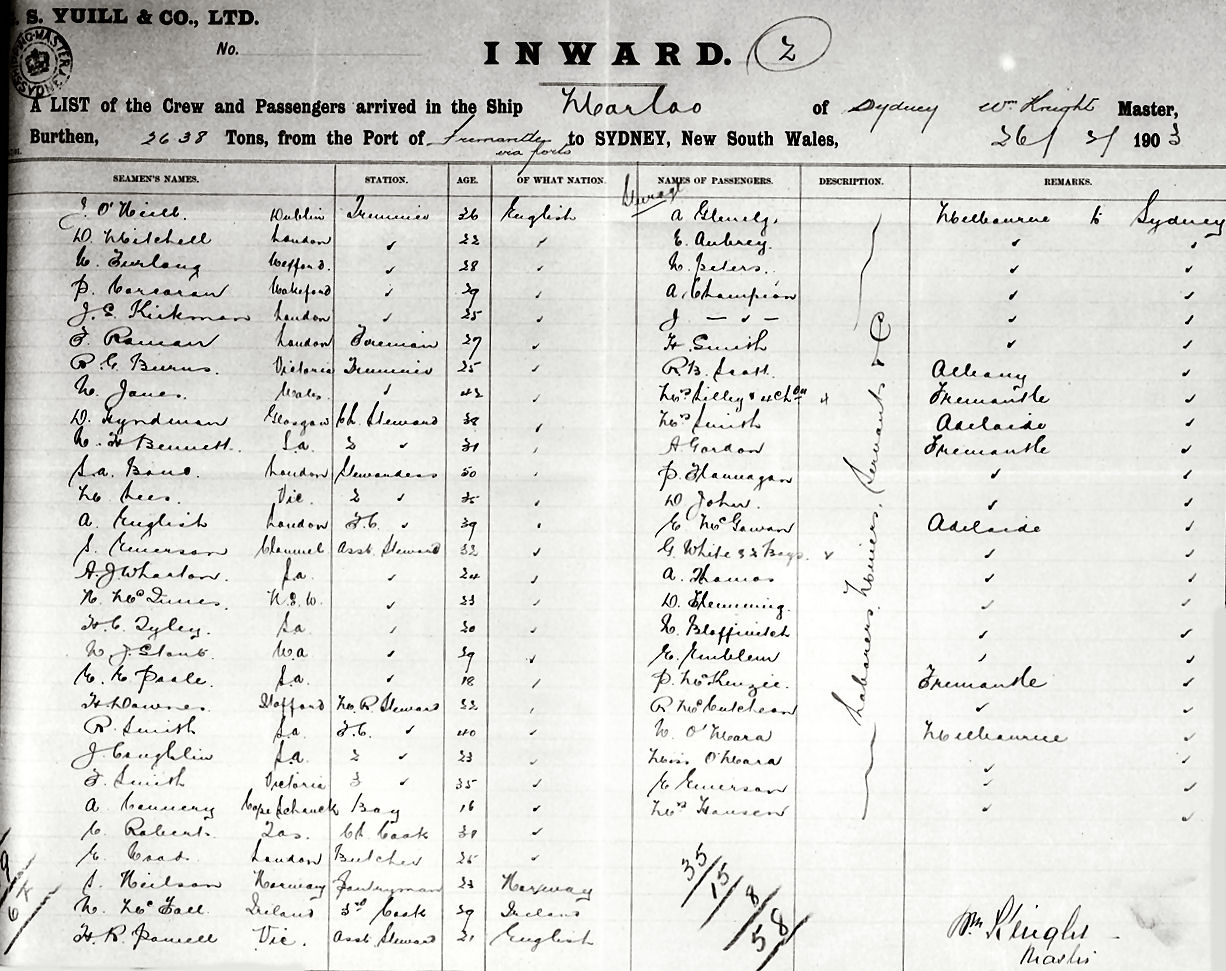 S. YUILL & CO., LTD.
No.
INWARD. 2
A LIST of the Crew and Passengers arrived in the Ship Marloo of Sydney Wm Knight Master,
Burthen, 2638 Tons, from the Port of Fremantle via ports to SYDNEY, New South Wales, 26/ 3/ 1903
SEAMEN'S NAMES. STATION. AGE. OF WHAT NATION. NAMES OF PASSENGERS. DESCRIPTION. REMARKS.
J. O'Neill Dublin Trimmer 26 English A Glenelg. Melbourne to Sydney
D. Mitchell London " 22 " E. Aubrey. " "
N. Furlong Wexford. " 28 " N. Peters. " "
P. Corcoran " " A. Champion " "
J. C. Kirkman London " 25 " J. — " — " "
London Foreman H. Smith " "
R. G. Burns. Victoria Trimmer 25 " R B. Scott. Albany "
W. Jones. Wales. " 42 " Mrs Lilley & 4 Chdn Fremantle "
D. Hyndman Glasgow Ch. Steward 38 " Mrs Smith Adelaide "
H Bennett. S.a. 2 " " A Gordon Fremantle "
London Stewardess 50 " P. Flannagan " "
M Lees. Vic. 2 " 35 " D John. " "
A. English London F.C. " 39 " E McGowan Adelaide "
S. Emerson Asst. Steward 32 " G. White & 2 Boys. " "
A. J Wharton. S.a. " 24 " A. Thomas " "
N.S.W. " 23 " D. Flemming. " "
H. C. Tyley. S.a. " " " "
W.a " " E. Emblem " "
E. E Poole. S.a. " 18 " P. McKenzie. Fremantle "
H Downes Stafford M. R. Steward 22 " R McCutcheon " "
R. Smith S.a. F.C. " 40 " W. O'Meara Melbourne "
J Coughlin S.a. 2 " 23 " Miss O'Meara " "
F. Smith Victoria 3 " 35 " E Emerson " "
A. Cape Schanck Boy 16 " Mrs Hansen " "
C. Robert. Tas. Ch. Cook "
E. Coad. London Butcher 25 "
S. Neilson Norway Pantryman 23 Norway
Ireland 3rd Cook Ireland
H. R. Powell Vic. Asst Steward 21 English
Steerage
Laborers, Miners, Servants & C
35/15/8/58
Wm Knight
Master